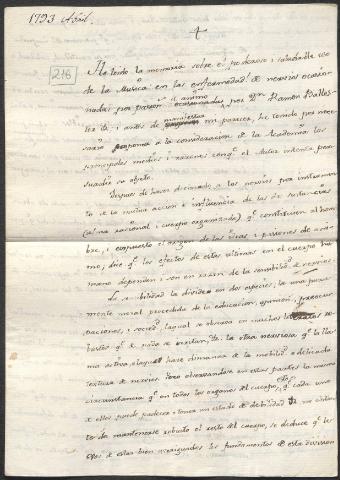 1793 Abril.
216
He leido la memoria sobre el poderoso i saludable uso
de la Musica en las enfermedad.s de nervios ocasio-
nadas por pasion.s de animo por D.n Ramon Balles-
ter &; i antes de manifestar mi parecer, he tenido por nece-
sario exponer a la consideracion de la Academia los
principales medios i razones con q.e el Autor intenta per-
suadir su objeto.
Despues de haver declarado a los nervios por instrumen-
to de la mutua accion e influencia de las dos sustancias
(alma racional i cuerpo organizado) q.e constituien al hom-
bre, i expuesto el origen de las ideas i pasiones de ani-
mo; dice q.e los efectos de estas ultimas en el cuerpo hu-
mano dependen i son en razon de la sensibilid.d de nervios
La debilidad la divide en dos especies; la una pura-
mente moral procedida de la educacion, opinion, preocu-
paciones, i socied.d, la qual se observa en muchos
bustos q.e de nada se irritan, &. la otra nerviosa q.e la lla-
ma activa, a la qual hace dimanar de la mobilid.d o delicada
textura de nervios. Pero observandose en estas partes la misma
circunstancia q.e en todos los organos del cuerpo, esto es q.e cada uno
de ellos puede padecer o tener un estado de debilidad no obstan-
te de mantenerse robusto el resto del cuerpo, se deduce q.e le-
xos de estar bien averiguados los fundamentos de esta division